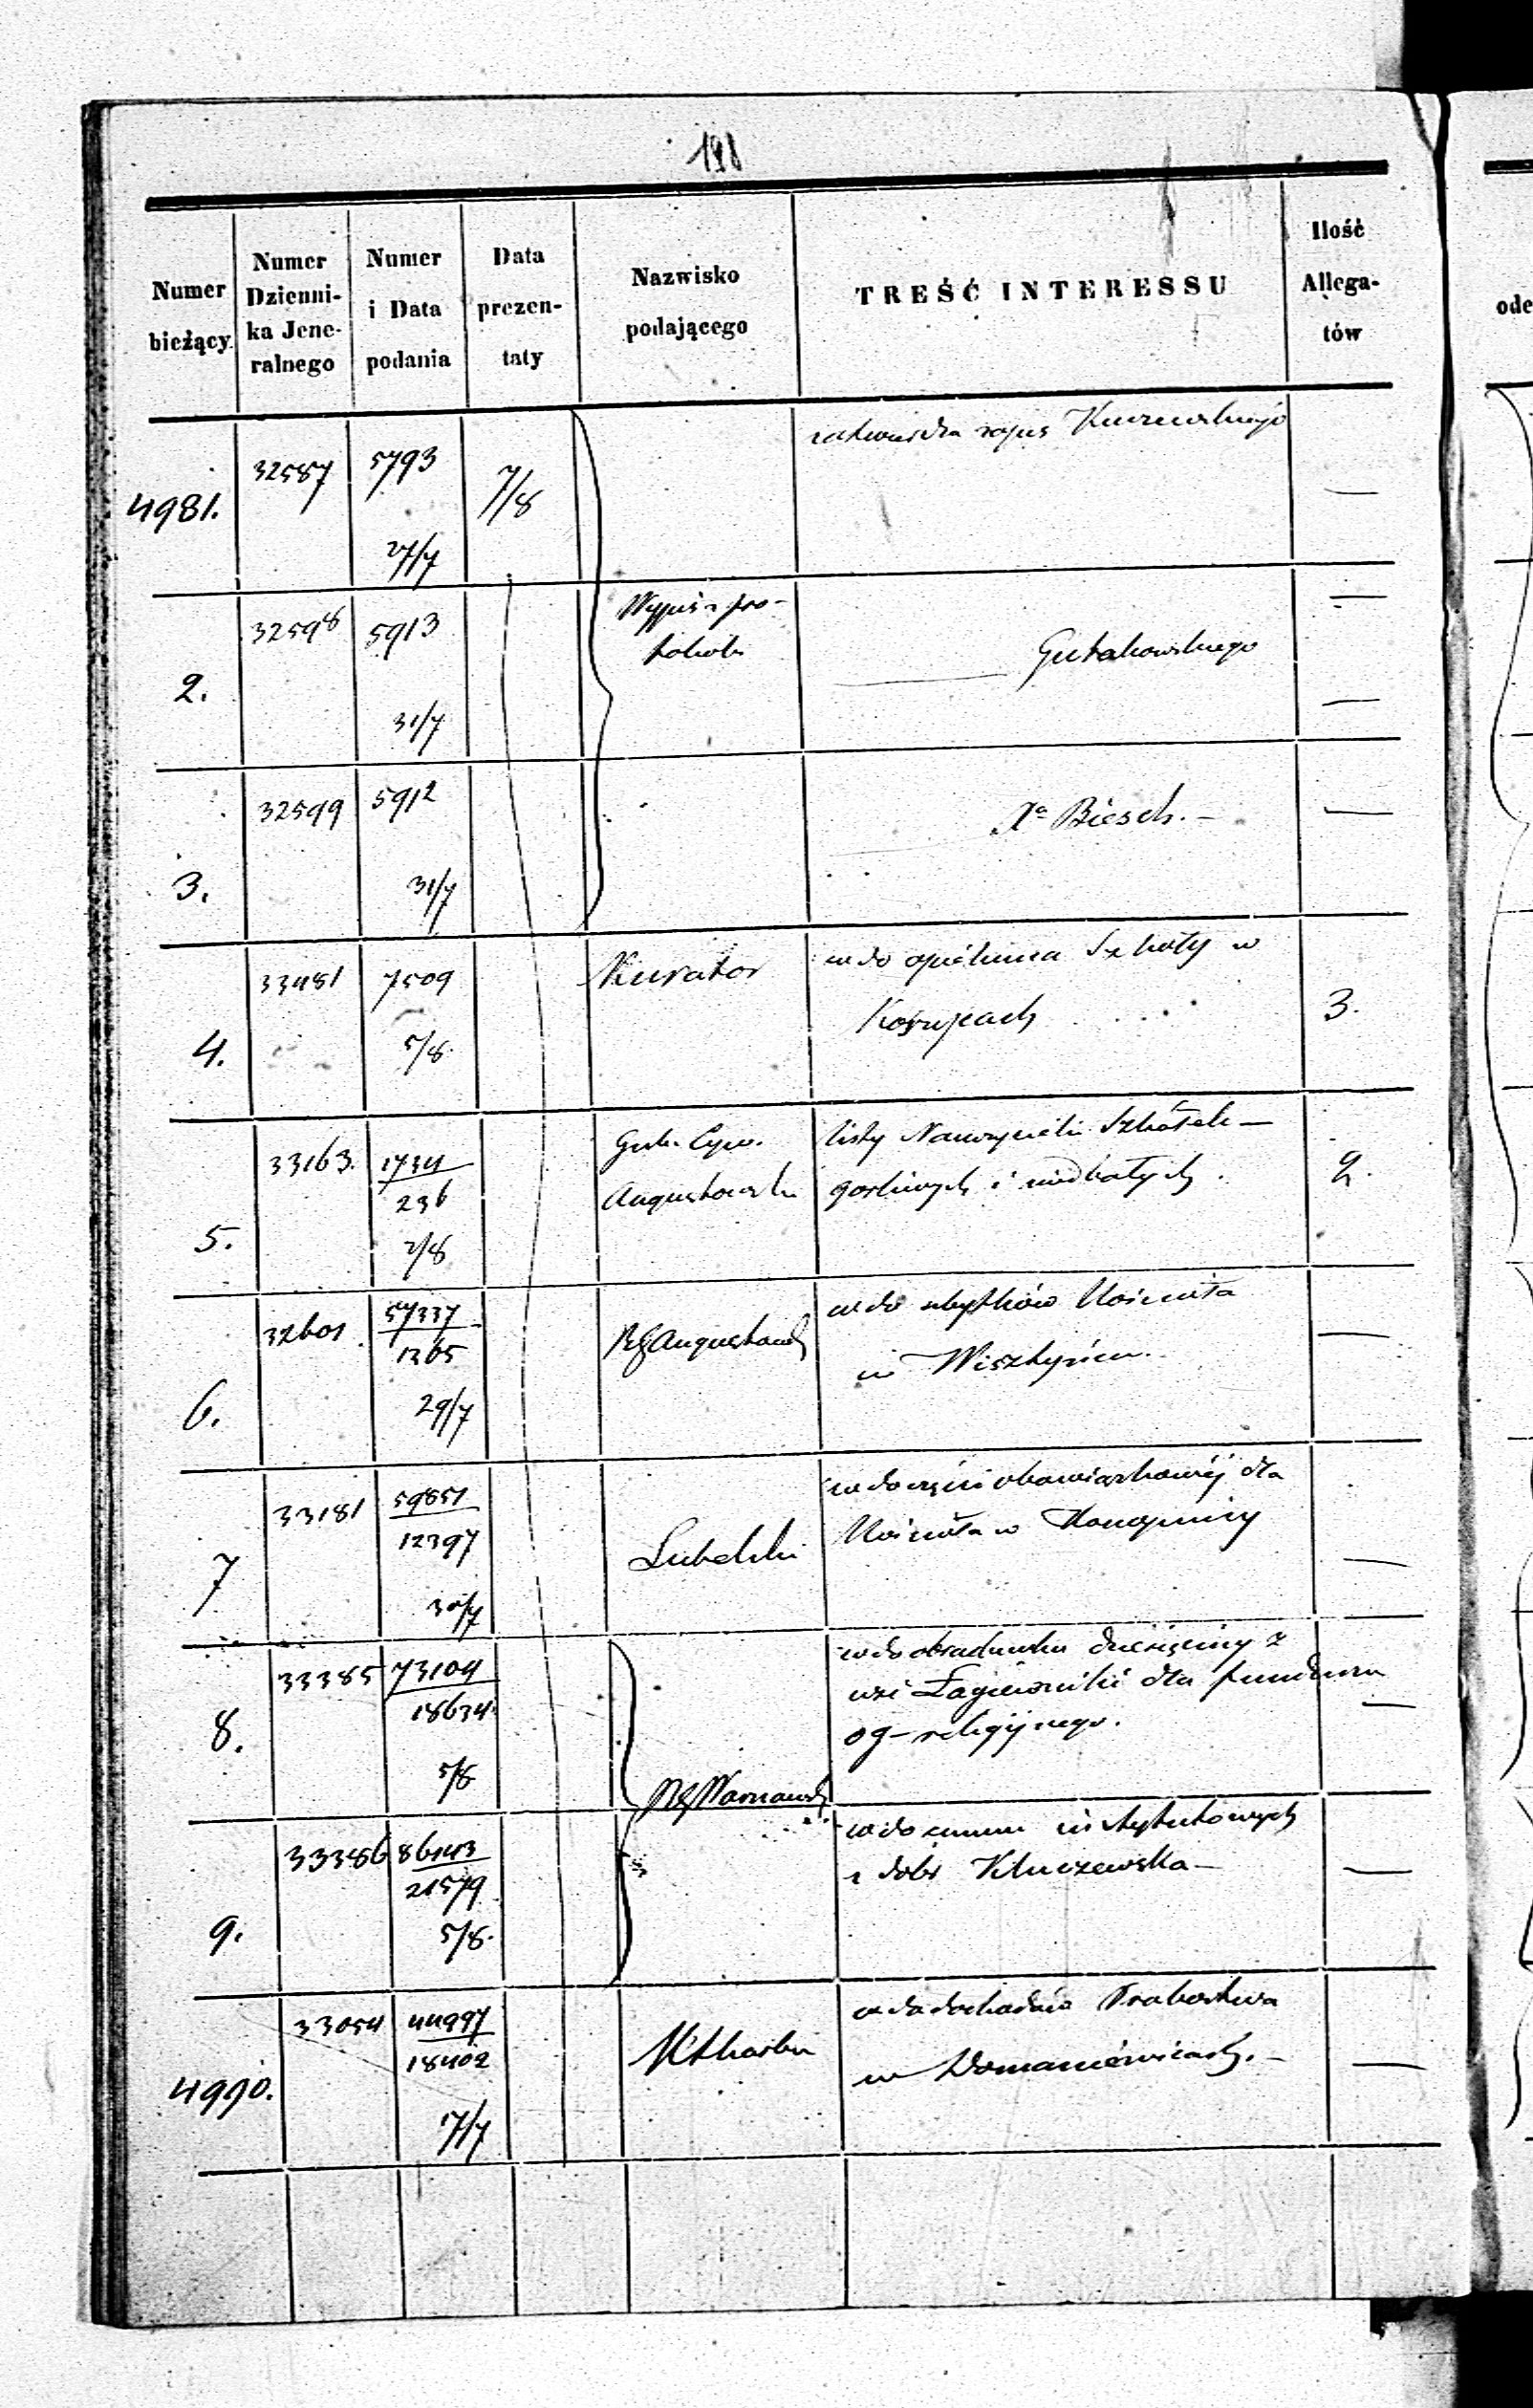 198
Numer bieżący
Numer Dzienni-ka Jene-ralnego
Numer i Data podania
Data prezen-taty
Nazwisko podającego
TREŚĆ INTERESSU
Ilość Allega-tów
4981. 32587 5793 7/8 —
27/7
2. 32598 5913 Wypis z pro- —
tokołu Gutakowskiego
31/7 —
3. 32599 5912 Xa Biesch. — —
31/7
4. 33481 7509 Kurator w do Szkoły w
3.
5/8
5. 33163. 1734 Gub. Cyw. listy Nauczycieli Szkółek —
236 Augustowski gorliwych i niedbałych. 2.
2/8
6. 32601 57337 RG Augustowski w do Kościoła —
1365 w Wisztyńcu.
29/7
7 33181 59851 w do obowiązkowej dla
12397 Lubelski Kościoła w —
30/7
8. 33385 73104 w do dziesięciny z
18634 wsi Łagiewniki dla funduszu —
og-religijnego.
5/8
RG Warszawski
9. 33386 86143 w do instytutowych
21579 z dóbr Kluczewska — —
5/8
4990. 33054 44997 w do dochodów Probostwa
18402 K Skarbu w Domaniewicach. — —
17/7
ode